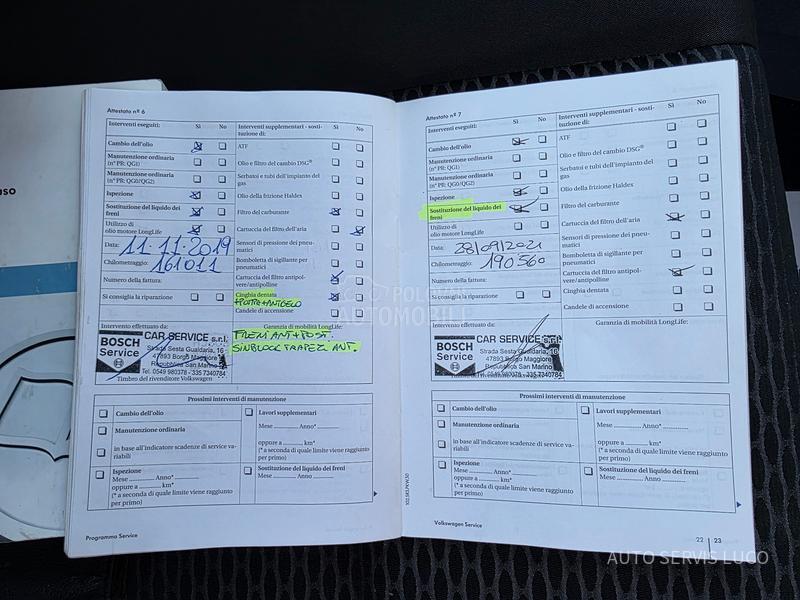 uso
Attestato nº 6
Interventi eseguiti: Sì No
Cambio dell'olio
Manutenzione ordinaria
(nº PR: QG1)
Manutenzione ordinaria
(nº PR: QG0/QG2)
Ispezione
Sostituzione del liquido dei
freni
Utilizzo di
olio motore LongLife
Data: 11.11.2019
Chilometraggio: 161011
Numero della fattura:
Si consiglia la riparazione
Interventi supplementari - sosti-
tuzione di: Sì No
ATF
Olio e filtro del cambio DSG®
Serbatoi e tubi dell'impianto del
gas
Olio della frizione Haldex
Filtro del carburante
Cartuccia del filtro dell'aria
Sensori di pressione dei pneu-
matici
Bomboletta di sigillante per
pneumatici
Cartuccia del filtro antipol-
vere/antipolline
Cinghia dentata
+POMPA+ANTIGELO
Candele di accensione
Intervento effettuato da:
BOSCH
Service
CAR SERVICE s.r.l.
Strada Sesta Gualdaria, 16
47893 Borgo Maggiore
Repubblica San Marino
Tel. 0549 980378 - 335 7340784
Timbro del rivenditore Volkswagen
Garanzia di mobilità LongLife:
FRENI ANT+POST.
SINBLOCK TRAPEZ. ANT.
Prossimi interventi di manutenzione
Cambio dell'olio
Manutenzione ordinaria
in base all'indicatore scadenze di service va-
riabili
Ispezione
Mese Anno*
oppure a km*
(* a seconda di quale limite viene raggiunto
per primo)
Lavori supplementari
Mese Anno*
oppure a km*
(* a seconda di quale limite viene raggiunto
per primo)
Sostituzione del liquido dei freni
Mese Anno
Programma Service
Attestato nº 7
Interventi eseguiti: Sì No
Cambio dell'olio
Manutenzione ordinaria
(nº PR: QG1)
Manutenzione ordinaria
(nº PR: QG0/QG2)
Ispezione
Sostituzione del liquido dei
freni
Utilizzo di
olio motore LongLife
Data: 28/09/2021
Chilometraggio: 190560
Numero della fattura:
Si consiglia la riparazione
Interventi supplementari - sosti-
tuzione di: Sì No
ATF
Olio e filtro del cambio DSG®
Serbatoi e tubi dell'impianto del
gas
Olio della frizione Haldex
Filtro del carburante
Cartuccia del filtro dell'aria
Sensori di pressione dei pneu-
matici
Bomboletta di sigillante per
pneumatici
Cartuccia del filtro antipol-
vere/antipolline
Cinghia dentata
Candele di accensione
Intervento effettuato da:
BOSCH
Service
CAR SERVICE s.r.l.
Strada Sesta Gualdaria, 16
47893 Borgo Maggiore
Repubblica San Marino
Tel. 0549 980378 - 335 7340784
Timbro del rivenditore Volkswagen
Garanzia di mobilità LongLife:
Prossimi interventi di manutenzione
Cambio dell'olio
Manutenzione ordinaria
in base all'indicatore scadenze di service va-
riabili
Ispezione
Mese Anno*
oppure a km*
(* a seconda di quale limite viene raggiunto
per primo)
Lavori supplementari
Mese Anno*
oppure a km*
(* a seconda di quale limite viene raggiunto
per primo)
Sostituzione del liquido dei freni
Mese Anno
Volkswagen Service
22 | 23
AUTO SERVIS LUCO